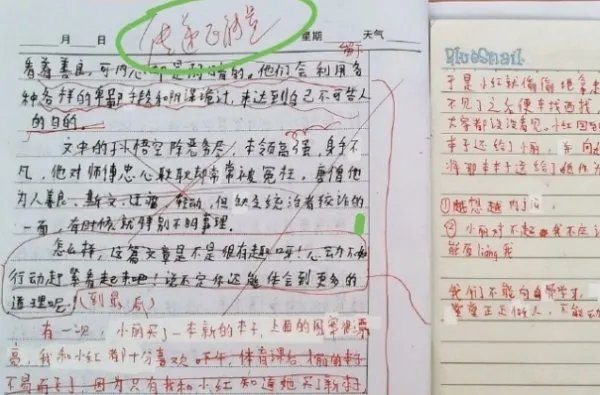 传递正能量
月 日 星期 天气
看着善良,可内心却是阴暗的。他们会利用各
种各样的卑鄙手段和阴谋诡计,来达到自己不可告人
的目的。
文中的孙悟空除恶务尽,本领高强,身手不
凡,他对师傅忠心耿耿却常常被冤枉,
为人善良、勤
一面,有时候就特别不明事理。
怎么样,这篇文章是不是很有趣呀!心动不如
行动赶紧看起来吧!说不定你还能体会到更多的
道理呢!(到最后)
有一次,小丽买了一本新的本子,上面的图案很漂
亮。我和小红都十分喜欢。下午,体育课后,小丽的本子
不易而飞了,因为只有我和小红知道她买了新本子
BlueSnail
于是小红就偷偷地拿走
不见了之后便来找西找,
大家都说没看见。小红因
本子还给了小丽,
将那本本子送给了
②小丽对不起,我不应该
能原liàng我
我们不能